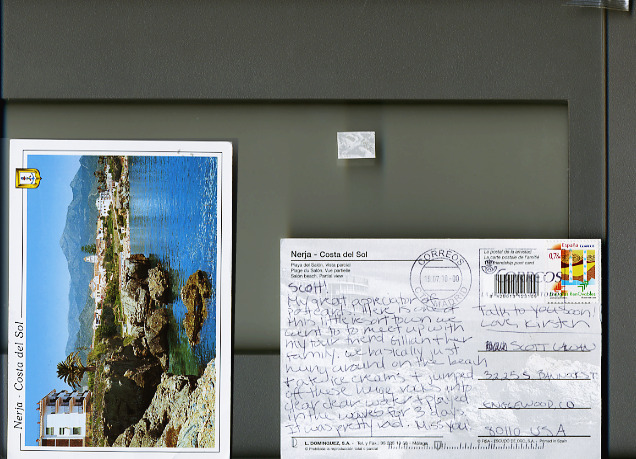 Nerja - Costa del Sol
Nerja - Costa del Sol
Playa del Salón. Vista parcial
Plage du Salón. Vue partielle
Salón beach. Partial view
CORREOS
MADRID
La postal de la amistad
La carte postale de l'amitié
The friendship post card
España
CORREOS
Scott!
great appreciator of
postcards, here is one of
this little sp town we
went to to meet up with
my tour friend Gillian + her
family. We basically just
hung around on the beach
+ ate ice creams + jumped
off these huge rocks into
clear clear water + played
in the waves for 3 days.
It was pretty rad. Miss you.
Talk to you soon!
Love, Kirsten
SCOTT
3225 S.
ENGLEWOOD, CO
80110 USA
L. DOMINGUEZ, S.A. - Tel. y Fax.: - Málaga
Prohibida la reproducción total o parcial
Printed in Spain